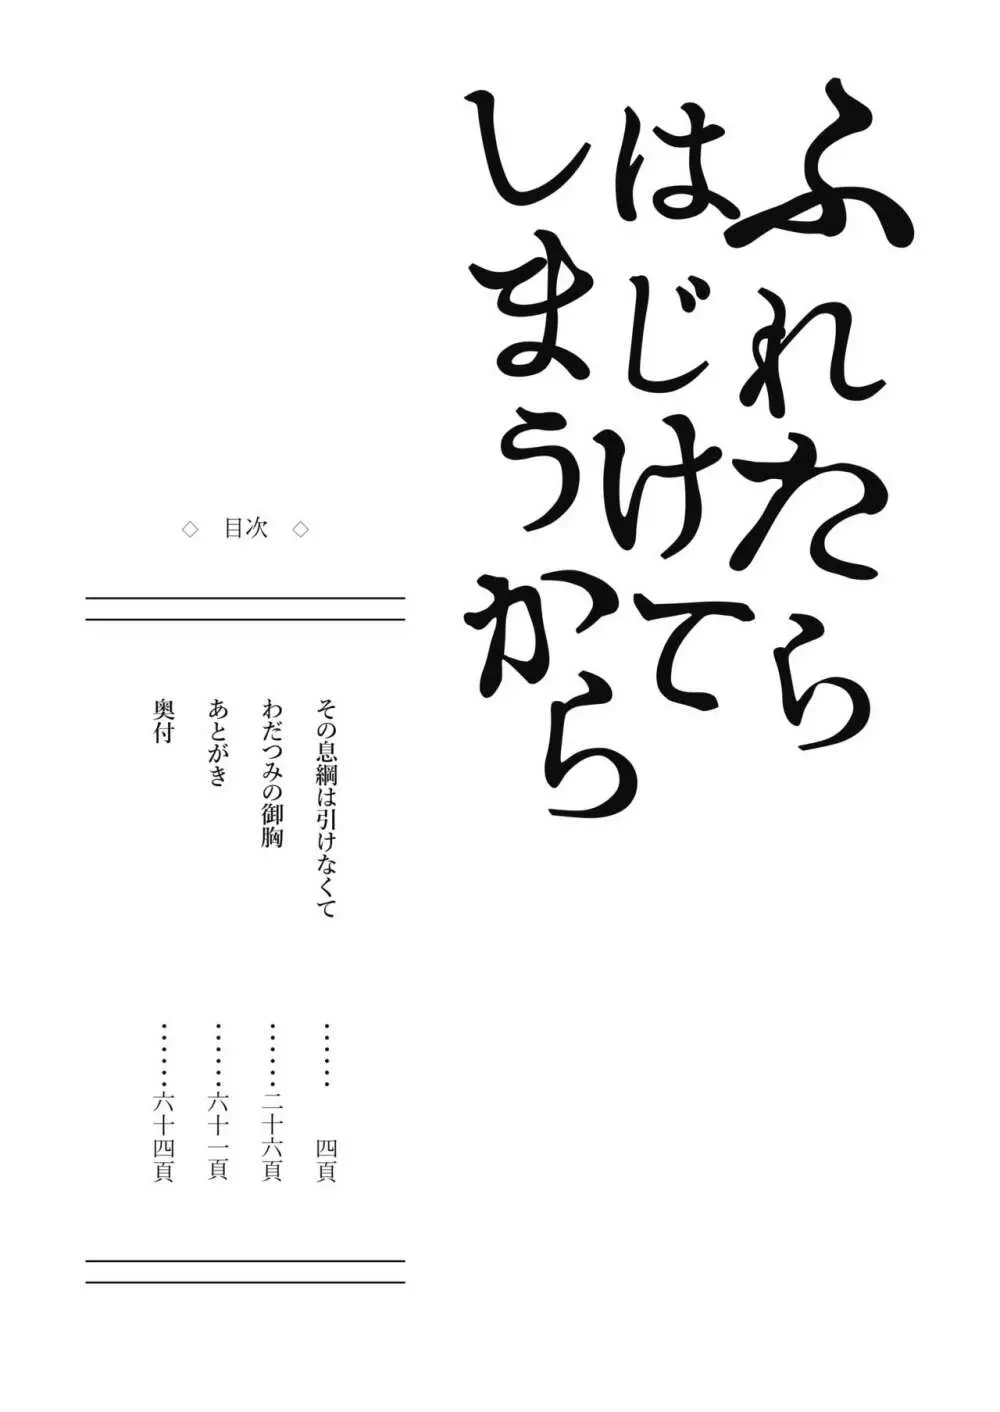 ふれたら
はじけて
しまうから
◇ 目次 ◇
その息綱は引けなくて ‥‥‥ 四頁
わだつみの御胸 ‥‥‥二十六頁
あとがき ‥‥‥六十一頁
奥付 ‥‥‥六十四頁